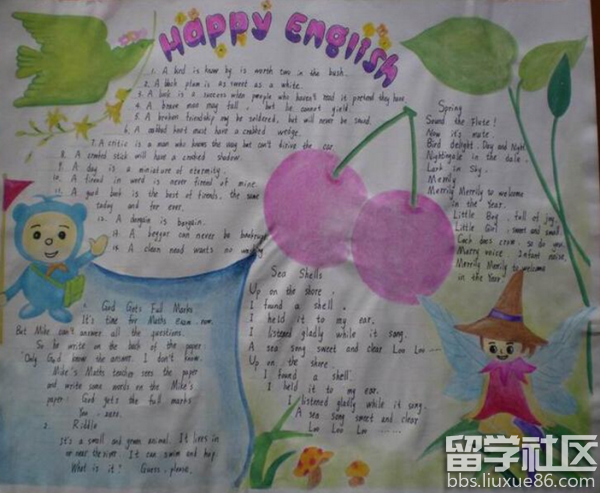 Happy English
1. A bird is know by is worth two in the bush.
2. A black plan is as sweet as a white.
3. A book is a success when people who haven't read it pretend they have
4. A brave man may fall, but he cannot yield.
5. A broken friendship my be soldered, but will never be sound.
6. A crabbed knot must have a crabbed wedge.
7. A critic is a man who knows the way but can't drive the car.
8. A crooked stick will have a crooked shadow.
9. A day is a miniature of eternity.
10. A friend in word is never friend of mine.
11. A good book is the best of friends, the same
today and for ever.
12. A bargain is bargain.
13. A beggar can never be bankrupt
14. A clean hand wants no washing
Spring
Sound the Flute!
Now it's mute.
Bird delight. Day and Night
Nightingale in the dale.
Lark in Sky.
Merrily
Merrily Merrily to welcome
in the Year.
Little Boy, full of joy,
Little Girl, sweet and small
Cock does crow, so do you.
Merry voice. Infant noise.
Merrily Merrily to welcome
in the Year.
Sea Shells
Up on the shore,
I found a shell.
I held it to my ear.
I listened gladly while it sang.
A sea song sweet and clear Loo Loo ......
Up on the shore.
I found a shell.
I held it to my ear.
I listened gladly while it sang.
A sea song sweet and clear
Loo Loo Loo ......
1. God Gets Full Marks
It's time for Maths exam now.
But Mike can't answer all the questions.
So he write on the back of the paper:
"Only God know the answer. I don't know.
Mike's Maths teacher sees the paper
and write some words on the Mike's
paper: God gets the full marks
You: zero.
2. Riddle
It's a small and green animal. It lives in
or near the river. It can swim and hop
What is it? Guess, please.
留学社区
bbs.liuxue86.com